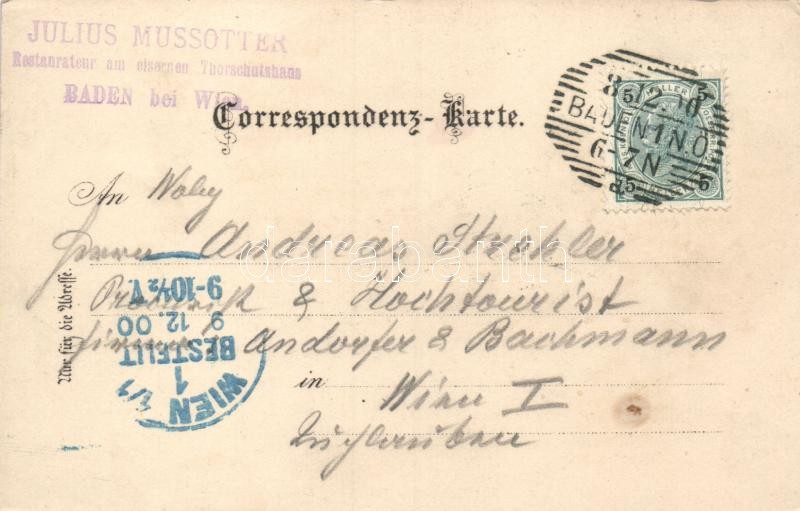 JULIUS MUSSOTTER
Restaurateur am eisernen Thorschutzhaus
BADEN bei Wien.
Correspondenz-Karte.
5 HELLER 5
8 12 00
BADEN 1 N.Ö.
6-7 N
5 5
An Wohlg
Herrn Andreas Strahler
& Hochtourist
Andorfer & Bachmann
in
Wien I
Tuchlauben
Nur für die Adresse.
WIEN 1/1
1
BESTELLT
9 12. 00
9-10½ V
darabanth